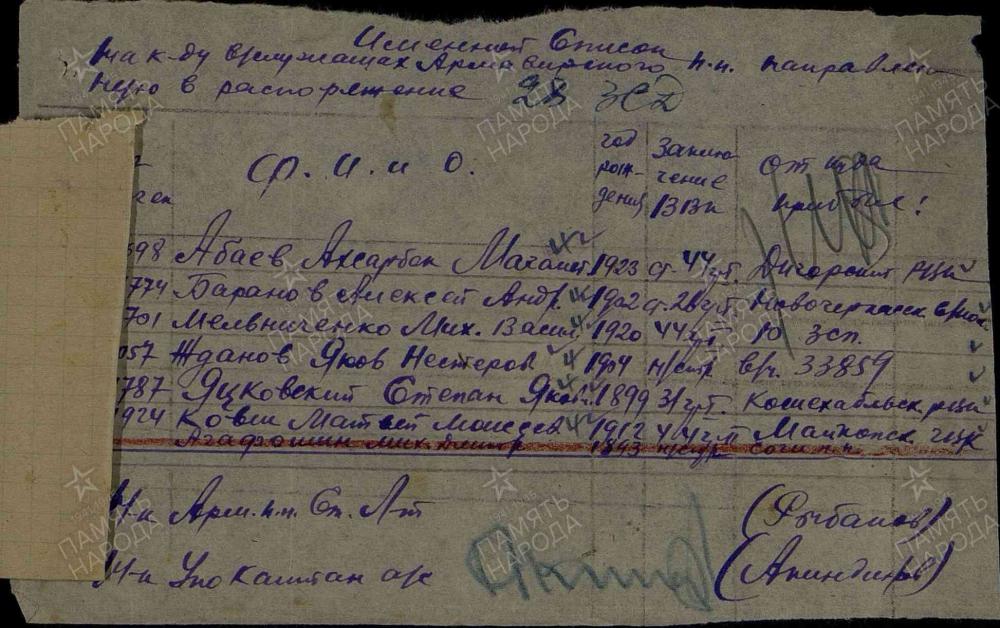 Именной Список
на к-ду служащах Армавирского п.п. направляет
ную в распоряжение 28 ЗСД
Ф. И. и О.
год рож-дения
Заклю-чение ВВк
От куда прибыл!
598 Абаев Ахсарбек 1923 ст. 44 гр. Дигорский рцы
774 Баранов Алексей Андр. 1902 Новочеркасск
701 Мельниченко Мих. Васил. 1920 44 10 зсп.
057 Жданов Яков Нестеров 1904 н/стр в/ч. 33859
787 Яцковский Степан Яков. 1899 31 гр. Кошехабльск. рцы
924 Матвей Моисеев 1912 44 Майкопск.
Агафошин Мих. Дмитр. 1893
Н-к Арм. п.п. Ст. Л-т (Рыбанов)
Н-к Капитан а/с
ПАМЯТЬ НАРОДА